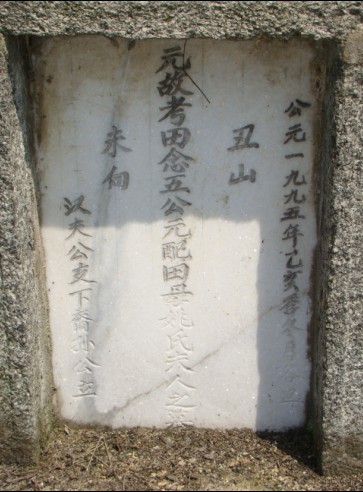 公元一九九五年乙亥季冬月立
丑山
元故考田念五公元配田母姚氏夫人之墓
未向
汉夫公支下裔孙公立